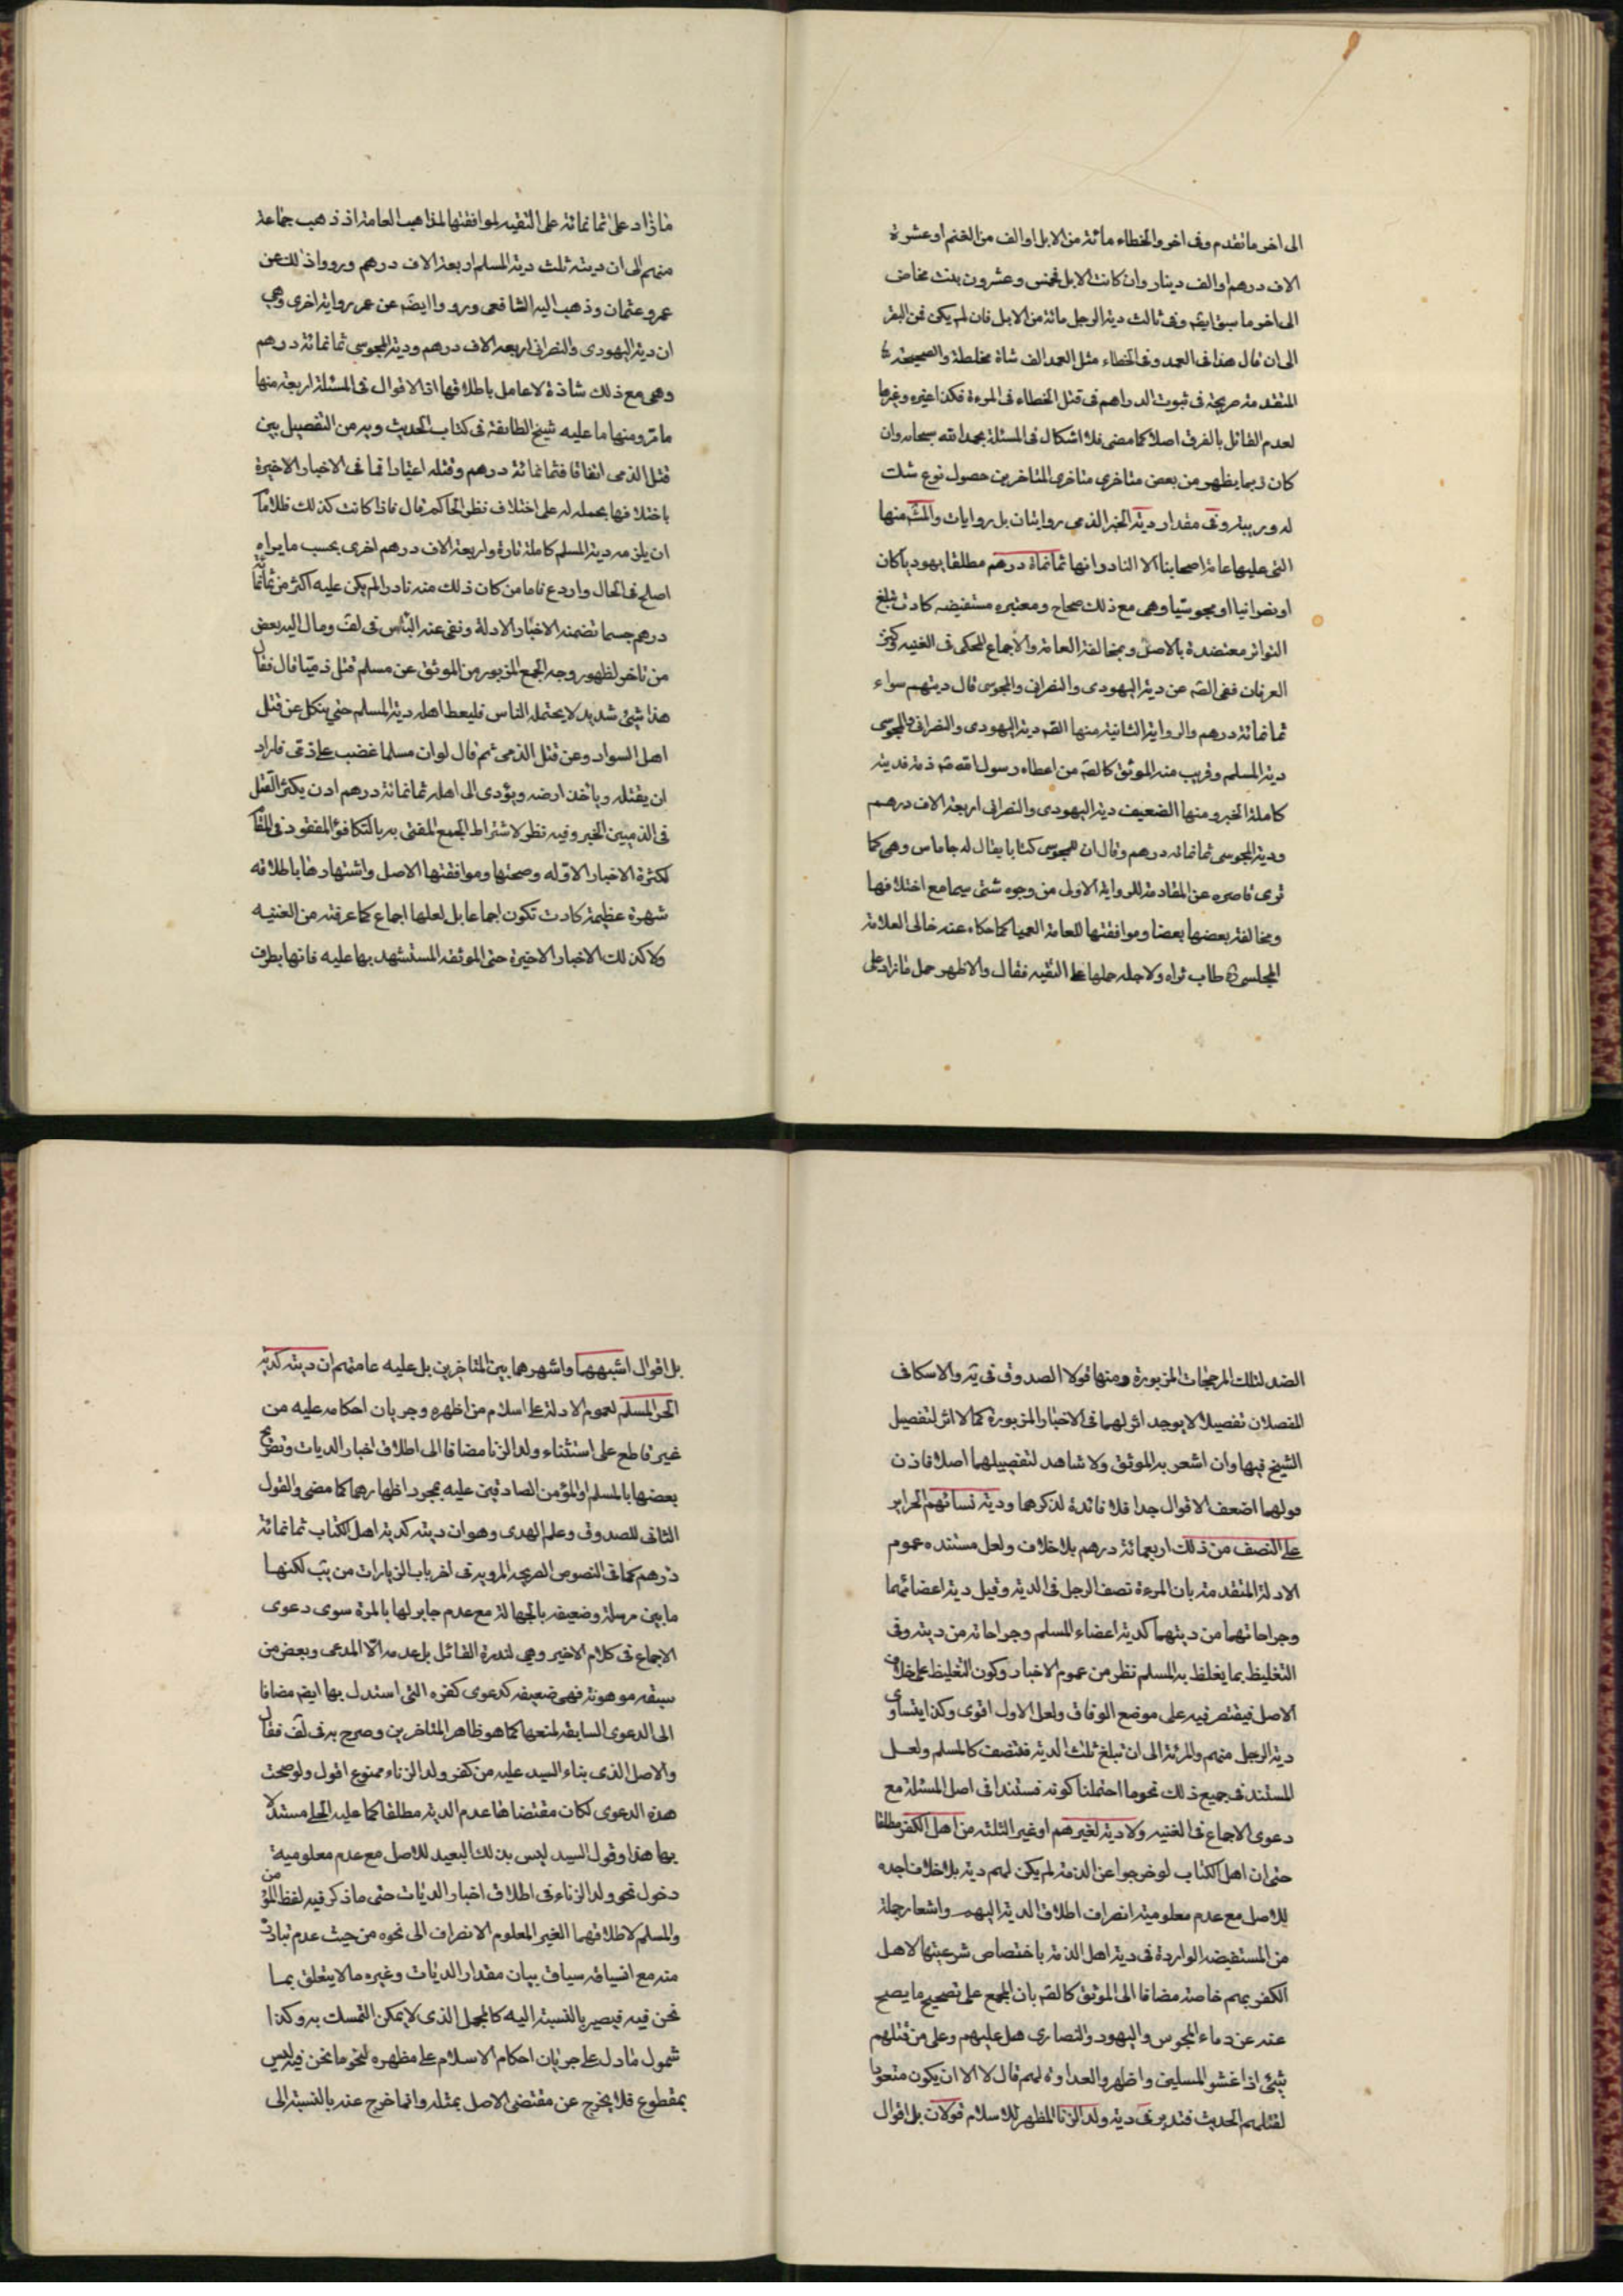 الى اخر ما تقدم وفى اخر والخطاء مائة من الابل او الف من الغنم او عشرة
الاف درهم او الف دينار وان كانت الابل فخمس وعشرون بنت مخاض
الى اخر ما سبق ايضم وفى ثالث دية الرجل مائة من الابل فان لم يكن فمن البقر
الى ان قال هذا فى العمد وفى الخطاء مثل العمد الف شاة مخلطة والصحيحة
المتقدمة صريحة فى ثبوت الدراهم فى قتل الخطاء فى المرءة فكذا غيره وغيرها
لعدم القائل بالفرق اصلا كما مضى فلا اشكال فى المسئلة بحمد الله سبحانه وان
كان ربما يظهر من بعض متاخرى متاخرى المتاخرين حصول نوع شك
له وريبة وفى مقدار دية الحر الذمى روايتان بل روايات والمش منها
التى عليها عامة اصحابنا الا النادر انها ثمانماة درهم مطلقا يهوديا كان
او نصرانيا او مجوسيا وهى مع ذلك صحاح ومعتبره مستفيضه كادت تبلغ
التواتر معتضدة بالاصل وبمخالفة العامة والاجماع المحكى فى الغنيه وكنز
العرفان ففى الصه عن دية اليهودى والنصرانى والمجوسى قال ديتهم سواء
ثمانمائة درهم والرواية الثانية منها الصه دية اليهودى والنصرانى والمجوسى
دية المسلم وقريب منه الموثق كالصه من اعطاه رسول الله ص ذمة فديته
كاملة الخبر ومنها الضعيف دية اليهودى والنصرانى اربعة الاف درهم
ودية المجوسى ثمانمائه درهم وقال ان للمجوسى كتابا يقال له جاماس وهى كما
ترى قاصره عن المقاومة للرواية الاولى من وجوه شتى سيما مع اختلافها
ومخالفة بعضها بعضا وموافقتها للعامة العميا كما حكاه عنه خالى العلامة
المجلسى ره طاب ثراه ولاجله حملها على التقيه فقال والاظهر حمل ما زاد على
ما زاد على ثمانمائة على التقيه لموافقتها لمذاهب العامة اذ ذهب جماعة
منهم الى ان ديته ثلث دية المسلم اربعة الاف درهم ورووا ذلك عن
عمر وعثمان وذهب اليه الشافعى ورووا ايضم عن عمر رواية اخرى وهى
ان دية اليهودى والنصرانى اربعة الاف درهم ودية المجوسى ثمانمائة درهم
وهى مع ذلك شاذة لا عامل باطلاقها اذ الاقوال فى المسئلة اربعة منها
ما مر ومنها ما عليه شيخ الطائفة فى كتاب الحديث وبه من التفصيل بين
قتل الذمى اتفاقا فثمانمائة درهم وقتله اعتيادا فما فى الاخبار الاخيرة
باختلافها بحمله له على اختلاف نظر الحاكم قال فاذا كانت كذلك فللامام
ان يلزمه دية المسلم كاملة تارة واربعة الاف درهم اخرى بحسب ما يراه
اصلح فى الحال واردع فاما من كان ذلك منه نادرا لم يكن عليه اكثر من ثمانمائة
درهم حسبما تضمنه الاخبار الادلة ونفى عنه الباس فى لف ومال اليه بعض
من تاخر لظهور وجه الجمع المزبور من الموثق عن مسلم قتل ذميا قال فقال
هذا شئ شديد لا يحتمله الناس فليعط اهله دية المسلم حتى ينكل عن قتل
اهل السواد وعن قتل الذمى ثم قال لو ان مسلما غضب على ذمى فاراد
ان يقتله وياخذ ارضه ويؤدى الى اهله ثمانمائة درهم اذن يكثر القتل
فى الذميين الخبر وفيه نظر لاشتراط الجمع المفتى به بالتكافؤ المفقود فى المقام
لكثرة الاخبار الاوله وصحتها وموافقتها الاصل واشتهارها باطلاقه
شهرة عظيمة كادت تكون اجماعا بل لعلها اجماع كما عرفته من الغنيه
ولا كذلك الاخبار الاخيرة حتى الموثقه المستشهد بها عليه فانها بطرف
الضد لتلك المرجحات المزبورة ومنها قولا الصدوق فى يه والاسكافى
المفصلان تفصيلا لا يوجد اثر لهما فى الاخبار المزبورة كما لا اثر لتفصيل
الشيخ فيها وان اشعر به الموثق ولا شاهد لتفصيلهما اصلا فاذن
قولهما اضعف الاقوال جدا فلا فائدة لذكرهما ودية نسائهم الحراير
على النصف من ذلك اربعمائة درهم بلا خلاف ولعل مستنده عموم
الادلة المتقدمة بان المرءة نصف الرجل فى الدية وقيل دية اعضائهما
وجراحاتهما من ديتهما كدية اعضاء المسلم وجراحاته من ديته وفى
التغليظ بما يغلظ به المسلم نظر من عموم الاخبار وكون التغليظ على خلاف
الاصل فيقتصر فيه على موضع الوفاق ولعل الاول اقوى وكذا يتساوى
دية الرجل منهم والمرئة الى ان تبلغ ثلث الدية فتنصف كالمسلم ولعل
المستند فى جميع ذلك نحو ما احتملنا كونه مستندا فى اصل المسئلة مع
دعوى الاجماع فى الغنيه ولا دية لغيرهم او غير الثلثة من اهل الكفر مطلقا
حتى ان اهل الكتاب لو خرجوا عن الذمة لم يكن لهم دية بلا خلاف اجده
للاصل مع عدم معلومية انصراف اطلاق الدية اليهم واشعار جملة
من المستفيضه الواردة فى دية اهل الذمة باختصاص شرعيتها لاهل
الكفر بهم خاصة مضافا الى الموثق كالصه بان المجمع على تصحيح ما يصح
عنه عن دماء المجوس واليهود والنصارى هل عليهم وعلى من قتلهم
شئ اذا غشو المسلمين واظهروا العداوة لهم قال لا الا ان يكون متعودا
لقتلهم الحديث فتدبر فى دية ولد الزنا المظهر للاسلام قولان بل اقوال
بل اقوال اشبههما واشهرهما بين المتاخرين بل عليه عامتهم ان ديته كدية
الحر المسلم لعموم الادلة على اسلام من اظهره وجريان احكامه عليه من
غير قاطع على استثناء ولد الزنا مضافا الى اطلاق اخبار الديات وتصريح
بعضها بالمسلم او المؤمن الصادقين عليه بمجرد اظهارهما كما مضى والقول
الثانى للصدوق وعلم الهدى وهو ان ديته كدية اهل الكتاب ثمانمائة
درهم كما فى النصوص الصريحة المروية فى اخر باب الزيارات من يب لكنها
ما بين مرسلة وضعيفه بالجهالة مع عدم جابر لها بالمرة سوى دعوى
الاجماع فى كلام الاخير وهى لندرة القائل بل عدمه الا المدعى وبعض من
سبقه موهونة فهى ضعيفه كدعوى كفره التى استدل بها ايضم مضافا
الى الدعوى السابقه لمنعها كما هو ظاهر المتاخرين وصرح به فى لف فقال
والاصل الذى بناء السيد عليه من كفر ولد الزناء ممنوع اقول ولو صحت
هذه الدعوى لكان مقتضاها عدم الدية مطلقا كما عليه الحلى مستدلا
بها هذا وقول السيد ليس بذلك البعيد للاصل مع عدم معلومية
دخول نحو ولد الزناء فى اطلاق اخبار الديات حتى ما ذكر فيه لفظ المؤمن
والمسلم لاطلاقهما الغير المعلوم الانصراف الى نحوه من حيث عدم تبادر
منه مع انسياقه سياق بيان مقدار الديات وغيره مما لا يتعلق بما
نحن فيه فيصير بالنسبة اليه كالمجمل الذى لا يمكن التمسك به وكذا
شمول ما دل على جريان احكام الاسلام على مظهره لنحو ما نحن فيه ليس
بمقطوع فلا يخرج عن مقتضى الاصل بمثله وانما خرج عنه بالنسبة الى